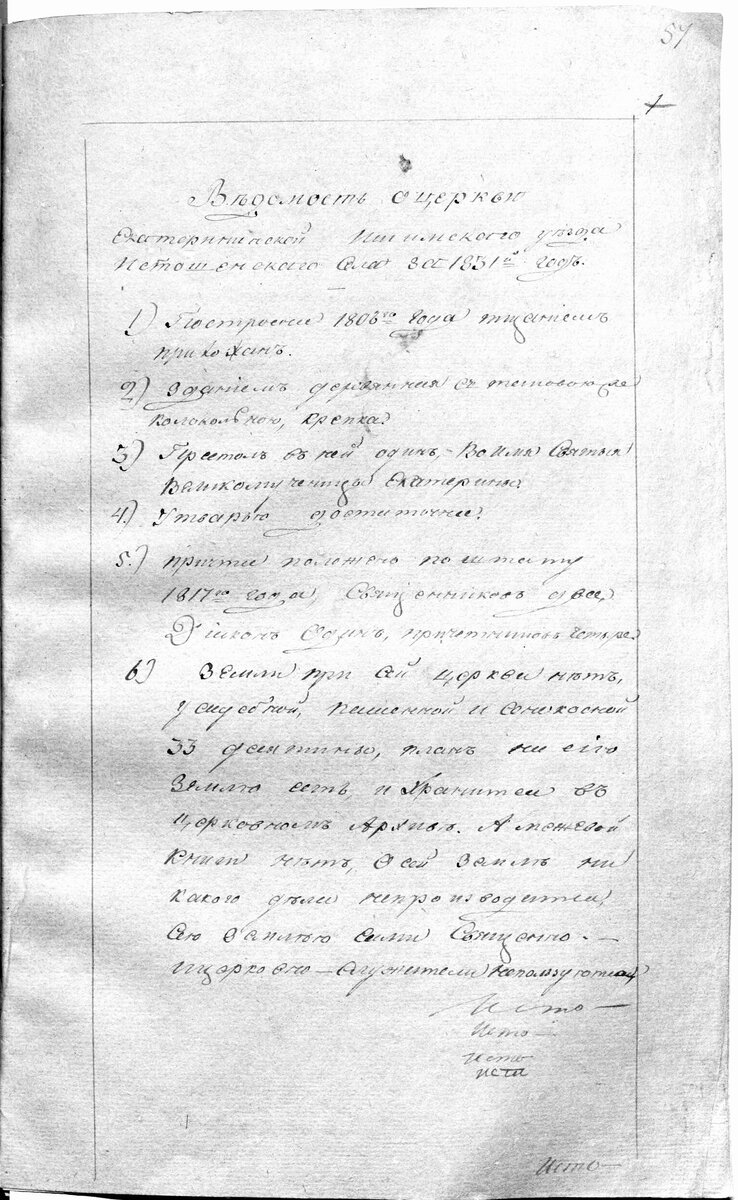 57
1
Вѣдомость о церкви
Екатерининской Ишимскаго уѣзда
Истошенскаго Села за 1831й годъ.
1) Построена 1803го года тщаніемъ
прихожанъ.
2) Зданіемъ деревянная съ таковою же
колокольнею, крепка.
3) Престолъ въ ней одинъ, Во имя Святыя
Великомученицы Екатерины.
4) Утварью достаточна.
5.) причта положено по штату
1817го года, Священниковъ два,
Діаконъ Одинъ, причетниковъ четыре.
6) Земли при сей церкви нѣтъ,
усадебной, пашенной и сенокосной
33 десятины, планъ на сію
Землю есть, и Хранится въ
церковномъ Архивѣ. А межевой
книги нѣтъ, О сей Землѣ ни
какого дѣла непроизводится,
Сею Землью сами Священно-
ицерковно-служители непользуются,
Исто-
Исто-
исто
иста
исто-